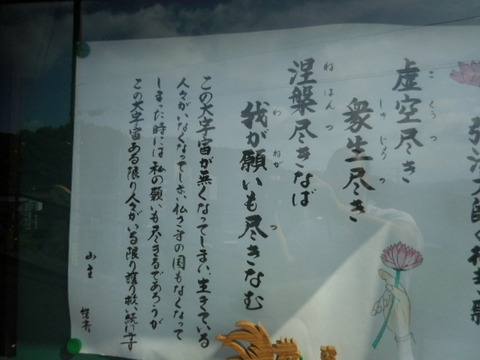 弘法大師
虚空尽き
こくうつ
衆生尽き
しゅじょうつ
涅槃尽きなば
ねはんつ
我が願いも尽きなむ
わねがつ
この大宇宙が無くなってしまい、生きている
人々がいなくなってしまい仏さまの国もなくなって
しまった時には私の願いも尽きるであろうが
この大宇宙ある限り人々がいる限り救い続け
山主